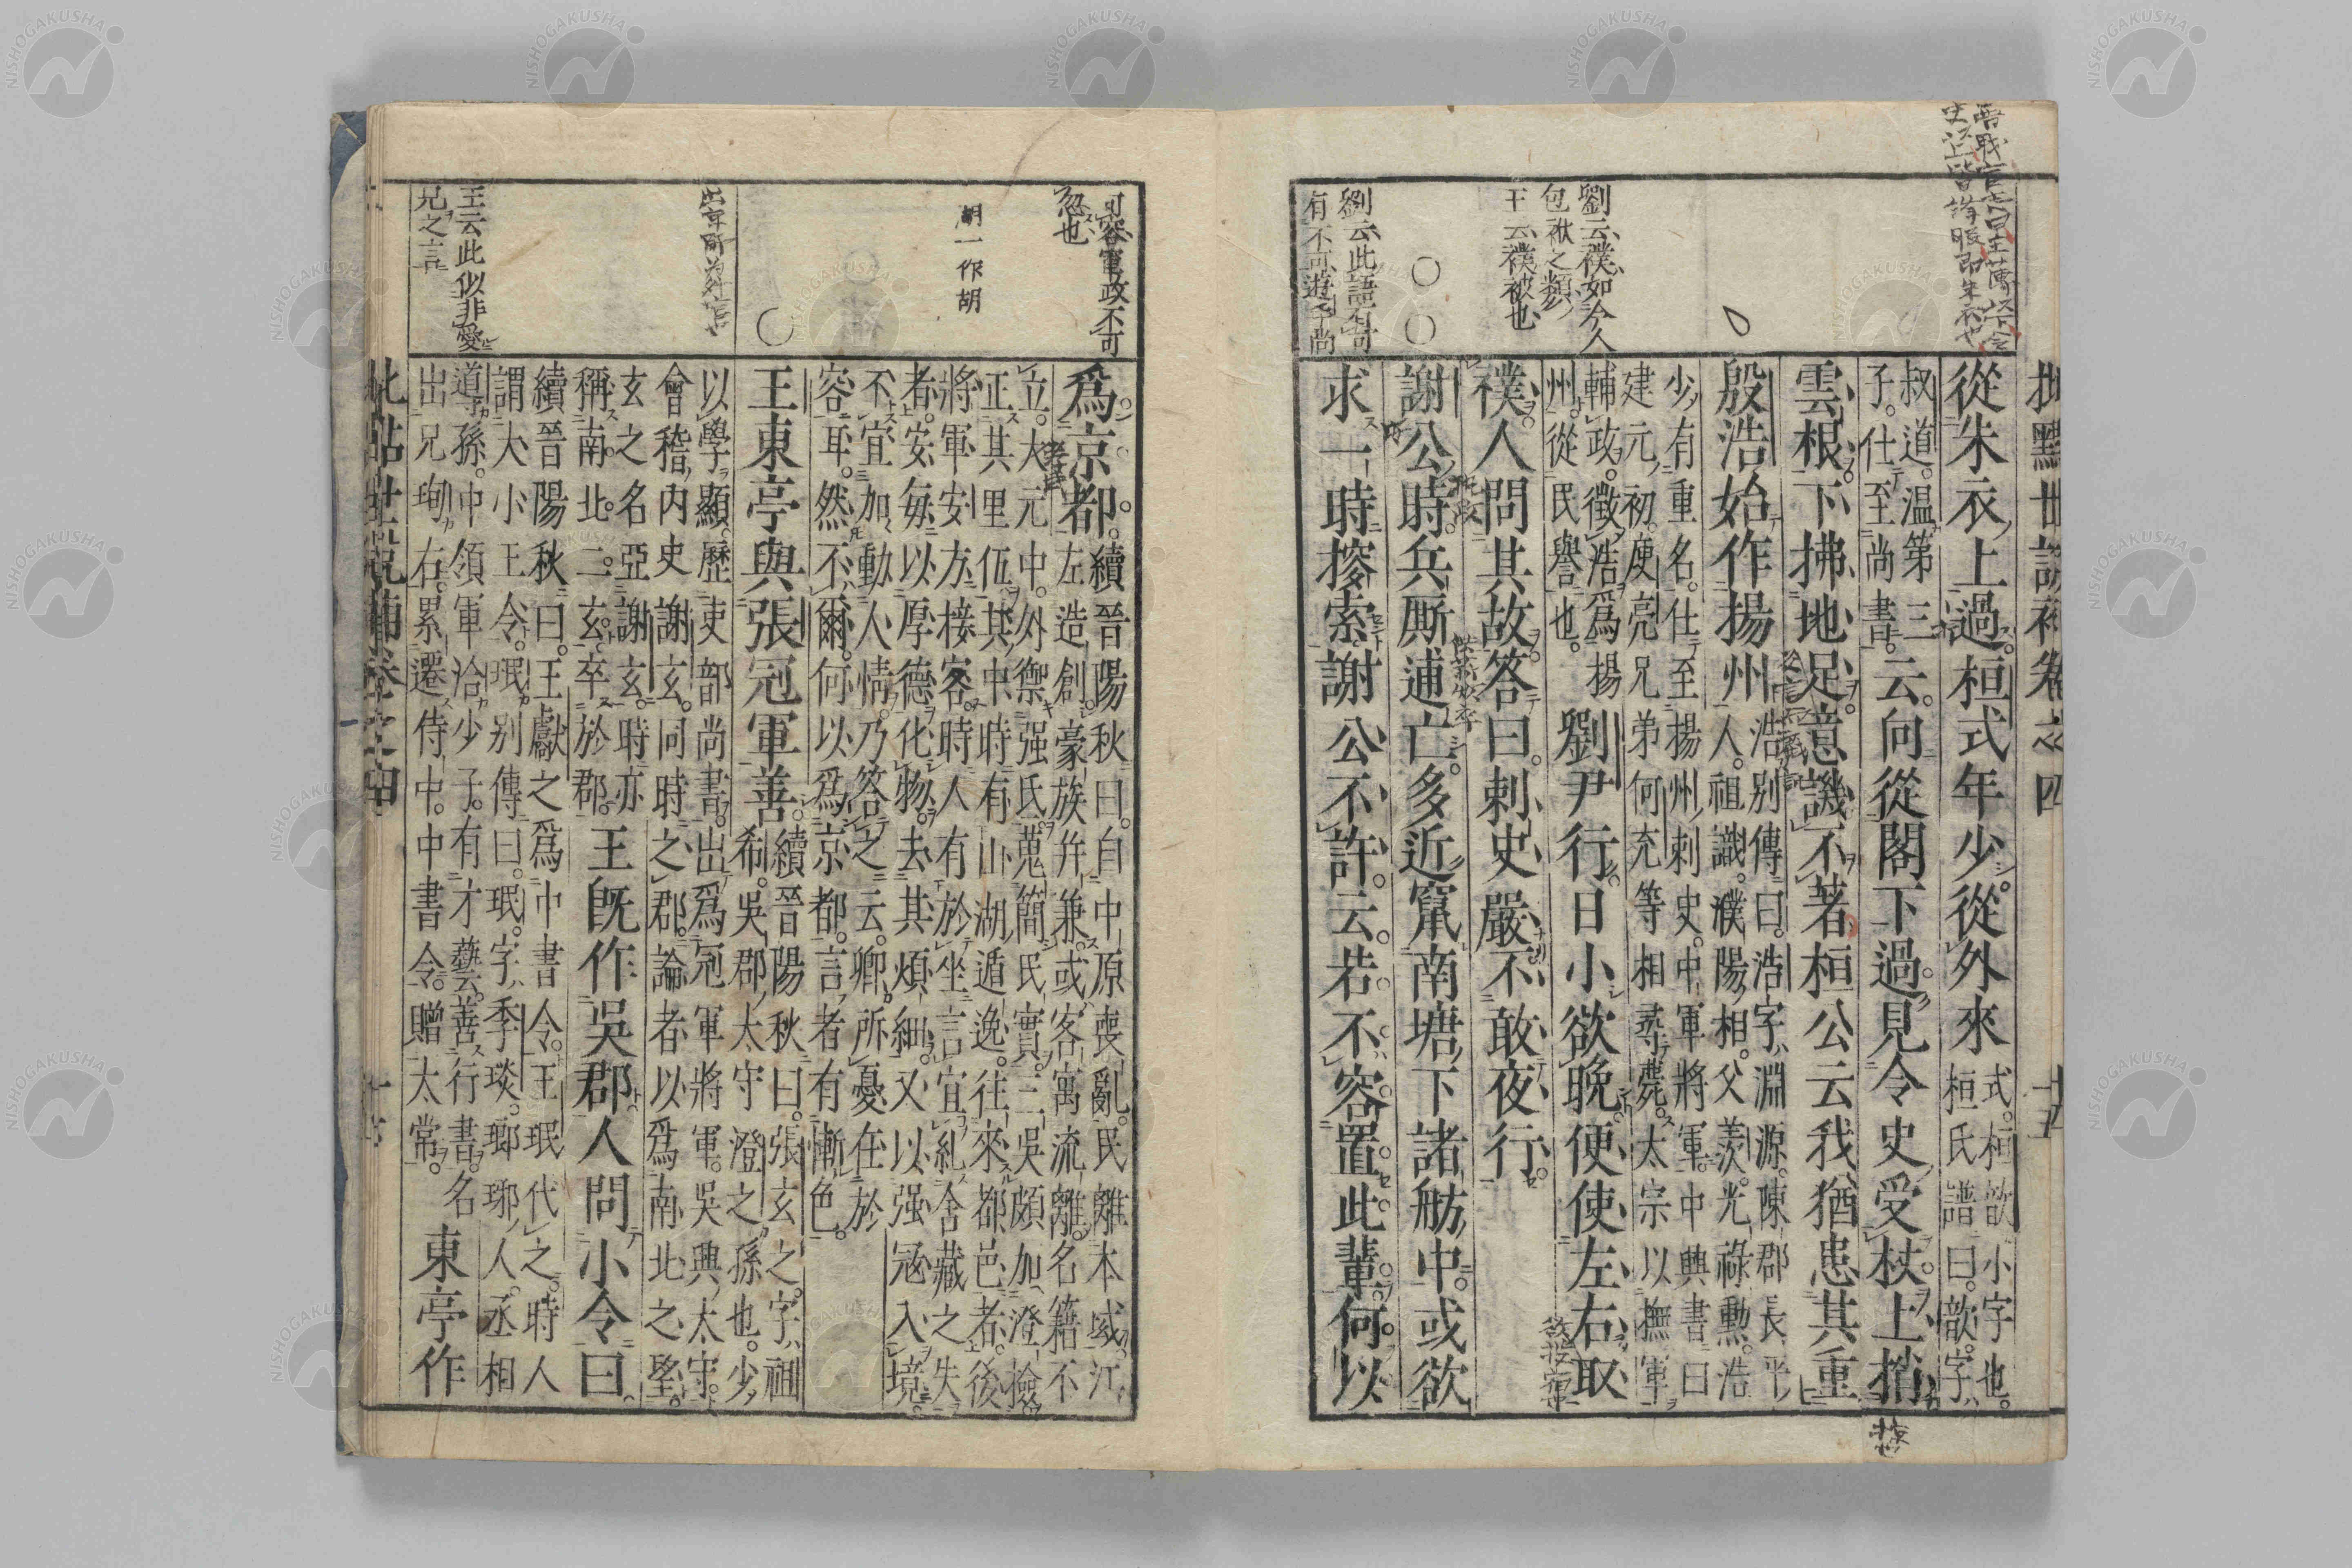 批點世說補卷之四
十五
從朱衣上過桓式年少從外來
式桓歆小字也
桓氏譜曰歆字
叔道溫第三
子仕至尚書
云向從閣下過見令史受杖上捎
雲根下拂地足意譏不著桓公云我猶患其重
殷浩始作揚州
浩別傳曰浩字淵源陳郡長平
人祖識濮陽相父羨光祿勳浩
少有重名仕至揚州刺史中軍將軍中興書曰
建元初庾亮兄弟何充等相尋薨太宗以撫軍
輔政徵浩爲揚
州從民譽也
劉尹行日小欲晚便使左右取
襆人問其故答曰刺史嚴不敢夜行
謝公時兵厮逋亡多近竄南塘下諸舫中或欲
求一時搜索謝公不許云若不容置此輩何以
劉云襆如今人
包袱之類
王云襆被也
劉云此語留可
有不可遊乎尚
爲京都
續晉陽秋曰自中原喪亂民離本域江
左造創豪族幷兼或客寓流離名籍不
立大元中外禦强氏蒐簡民實三吳頗加澄檢
正其里伍其中時有山湖遁逸往來都邑者後
將軍安方接客時人有於坐言宜糺舍藏之失
者安每以厚德化物去其煩細又以强寇入境
不宜加動人情乃答之云卿所憂在於
容耳然不爾何以爲京都言者有慚色
王東亭與張冠軍善
續晉陽秋曰張玄之字祖
希吳郡太守澄之孫也少
以學顯歷吏部尚書出爲冠軍將軍吳興太守
會稽內史謝玄同時之郡論者以爲南北之望
玄之名亞謝玄時亦
稱南北二玄卒於郡
王旣作吳郡人問小令曰
續晉陽秋曰王獻之爲中書令王珉代之時人
謂大小王令珉別傳曰珉字季琰瑯琊人丞相
導孫中領軍洽少子有才藝善行書名
出兄珣右累遷侍中中書令贈太常
東亭作
可容軍政不可
忽也
胡一作胡
王云此似非愛
兄之言
批點世說補卷之四